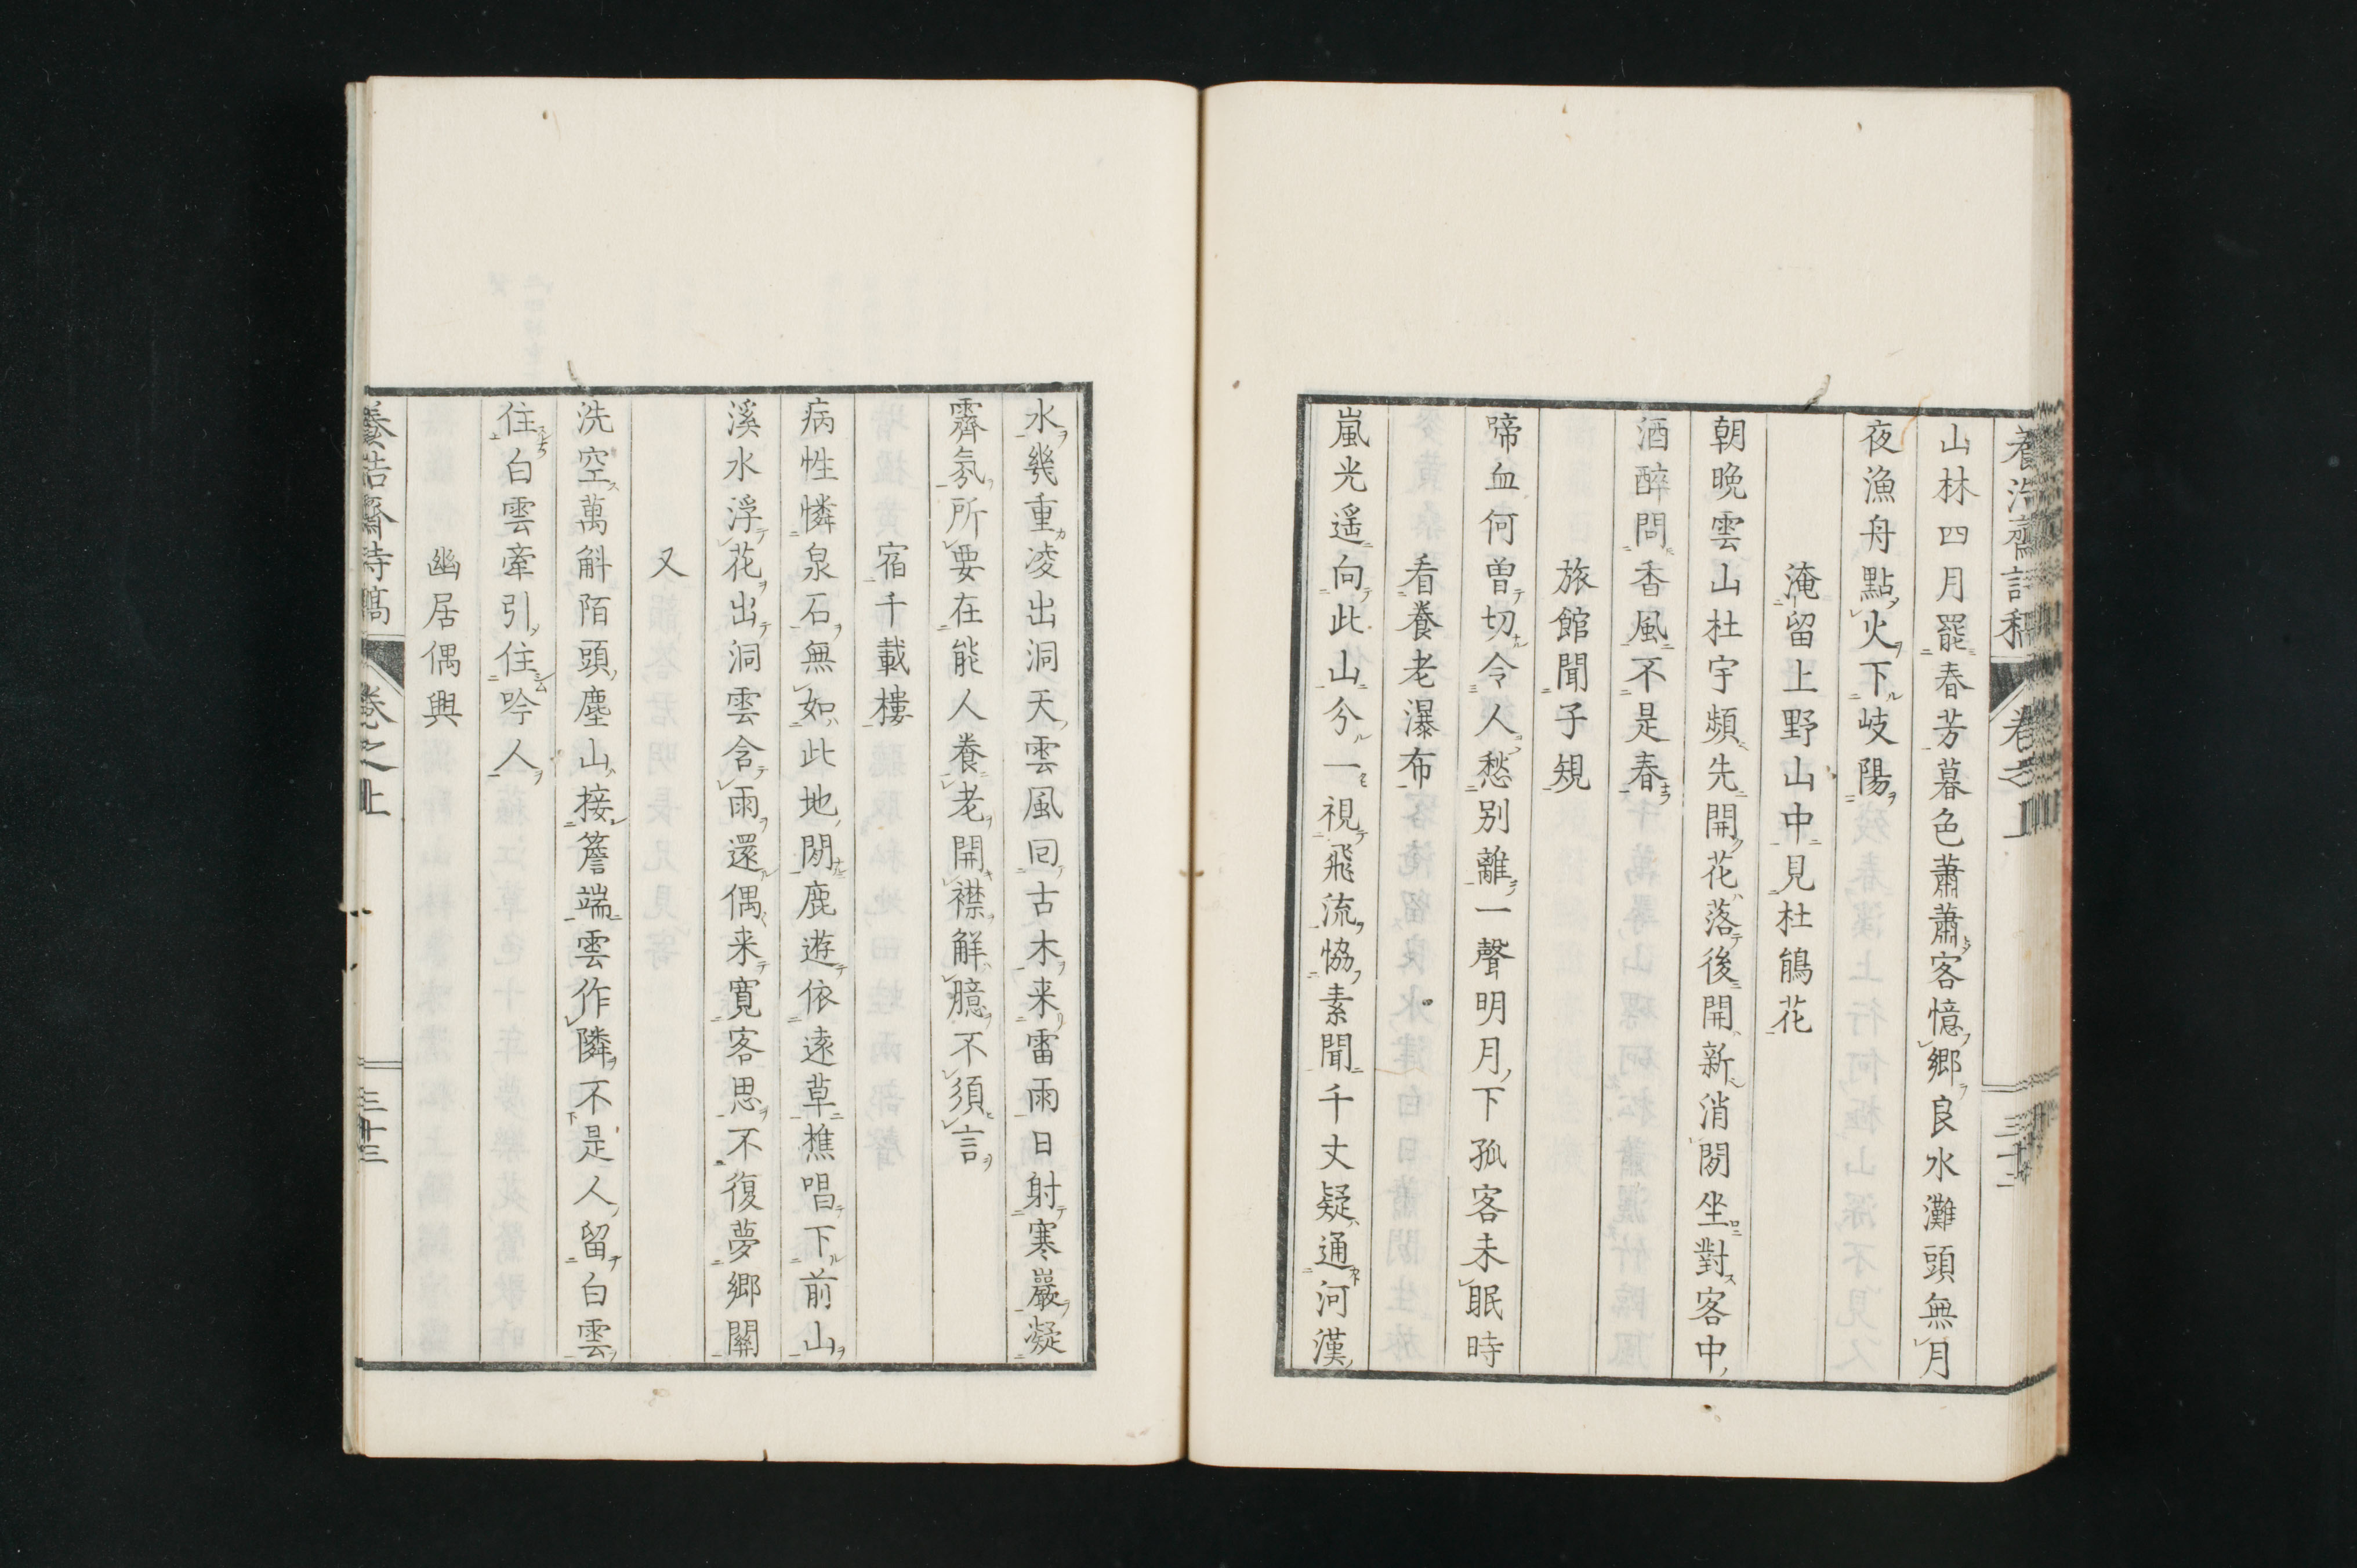 養浩齋詩稿 卷之上 三十二
山林四月罷春芳暮色蕭蕭客憶鄉良水灘頭無月
夜漁舟點火下岐陽
淹留上野山中見杜鵑花
朝晚雲山杜宇頻先開花落後開新消閑坐對客中
酒醉問香風不是春
旅館聞子規
啼血何曾切令人愁别離一聲明月下孤客未眠時
看養老瀑布
嵐光遥向此山分一視飛流協素聞千丈疑通河漢
水幾重凌出洞天雲風回古木来雷雨日射寒巖凝
霽氛所要在能人養老開襟觧臆不須言
宿千載樓
病性憐泉石無如此地閑鹿遊依遠草樵唱下前山
溪水浮花出洞雲含雨還偶来寬客思不復夢鄉關
又
洗空萬斛陌頭塵山接簷端雲作隣不是人留白雲
住白雲牽引住吟人
幽居偶興
養浩齋詩稿 卷之上 三十三